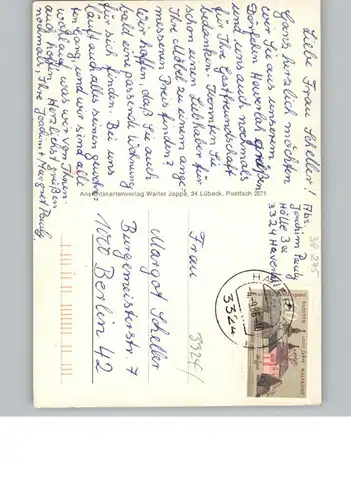 Liebe Frau Scheller!
Ganz herzlich möchten
wir Sie aus unserem
Dörfchen Haverlah grüßen
und uns auch nochmals
für Ihre Gastfreundschaft
bedanken. Konnten Sie
schon einen Liebhaber für
Ihre Möbel zu einem ange-
messenen Preis finden?
Wir hoffen, daß Sie auch
bald eine passende Wohnung
für sich finden. Bei uns
läuft auch alles seinen gewohn-
ten Gang, und wir sind alle
wohlauf, was wir von Ihnen
auch hoffen. Herzlichst grüßen
nochmals, Ihre Joachim & Margret Pauly
Ansichtskartenverlag Walter Jappe, 24 Lübeck, Postfach 2071
Abs.
Joachim Pauly
Hölle 3a
3324 Haverlah
38 275
3324
Frau
3324/
Margot Scheller
Burgemeisterstr. 7
1000 Berlin 42